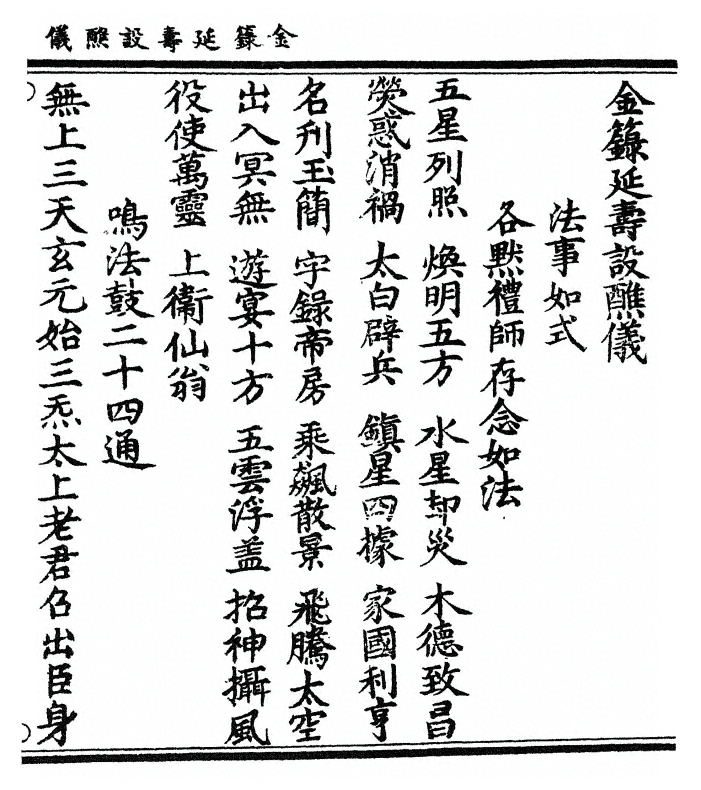 金籙延壽設醮儀
金籙延壽設醮儀
法事如式
各默禮師存念如法
五星列照 煥明五方 水星却災 木德致昌
熒惑消禍 太白辟兵 鎮星四據 家國利亨
名刋玉簡 字錄帝房 乘飆散景 飛騰太空
出入冥無 遊宴十方 五雲浮盖 招神攝風
役使萬靈 上衞仙翁
鳴法鼓二十四通
無上三天玄元始三炁太上老君召出臣身